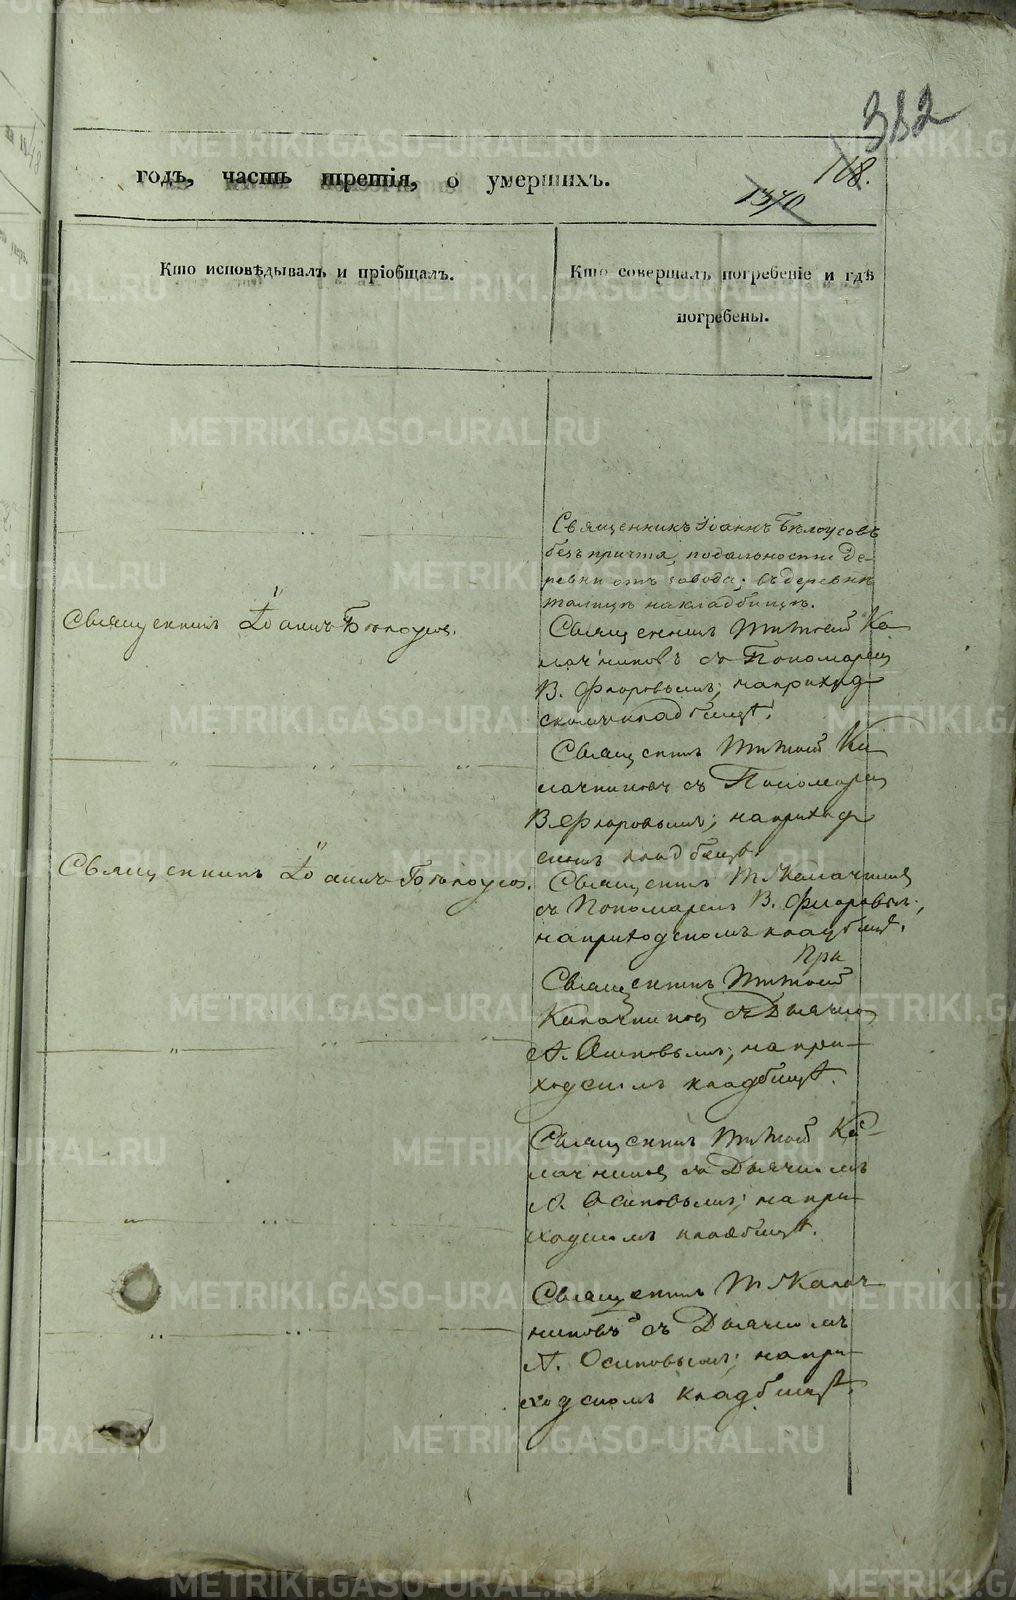 382
118.
1370
годъ, часть третія, о умершихъ.
Кто исповѣдывалъ и пріобщалъ.
Кто совершалъ погребеніе и гдѣ
погребены.
Священникъ Іоаннъ Бѣлоусовъ
безъ причта, подальности де-
ревни отъ завода; въ деревнѣ
на кладбищѣ.
Священникъ Іоаннъ Бѣлоусов.
Священникъ Тимофей Ка
лачниковъ съ Пономарем
В. Флоровымъ; на приход
скомъ кладбищѣ.
Священникъ Тимофей Ка
лачниковъ съ Пономарем
В. Флоровымъ; на приход
скомъ кладбищѣ.
Священникъ Іоаннъ Бѣлоусов.
Священникъ Т. Калачников
съ Пономаремъ В. Флоровым.,
на приходскомъ кладбищѣ.
При
Священникъ Тимофей
Калачников съ Дьячком
А. Осиповымъ; на при-
ходскомъ кладбищѣ.
Священникъ Тимофей Ка-
лачников съ Дьячкомъ
А. Осиповымъ; на при-
ходскомъ кладбищѣ.
Священникъ Т. Калач
никовъ съ Дьячкомъ
А. Осиповымъ; на при-
ходскомъ кладбищѣ.
METRIKI.GASO-URAL.RU